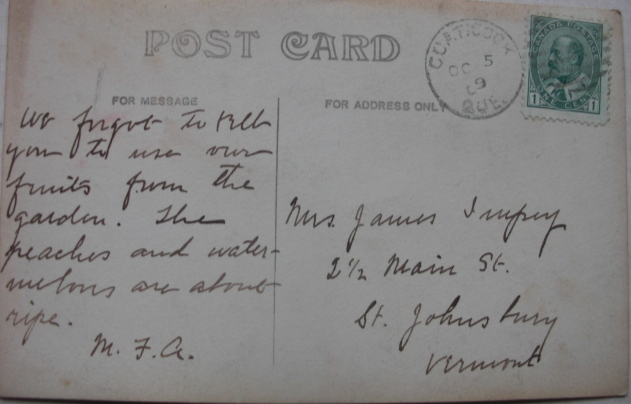 POST CARD
COATICOOK
OC 5
09
QUE.
CANADA POSTAGE
1 ONE CENT 1
FOR MESSAGE
FOR ADDRESS ONLY
We forgot to tell
you to use our
fruits from the
garden. The
peaches and water-
melons are about
ripe.
M. F. A.
Mrs. James Impey
2 1/2 Main St.
St. Johnsbury
Vermont